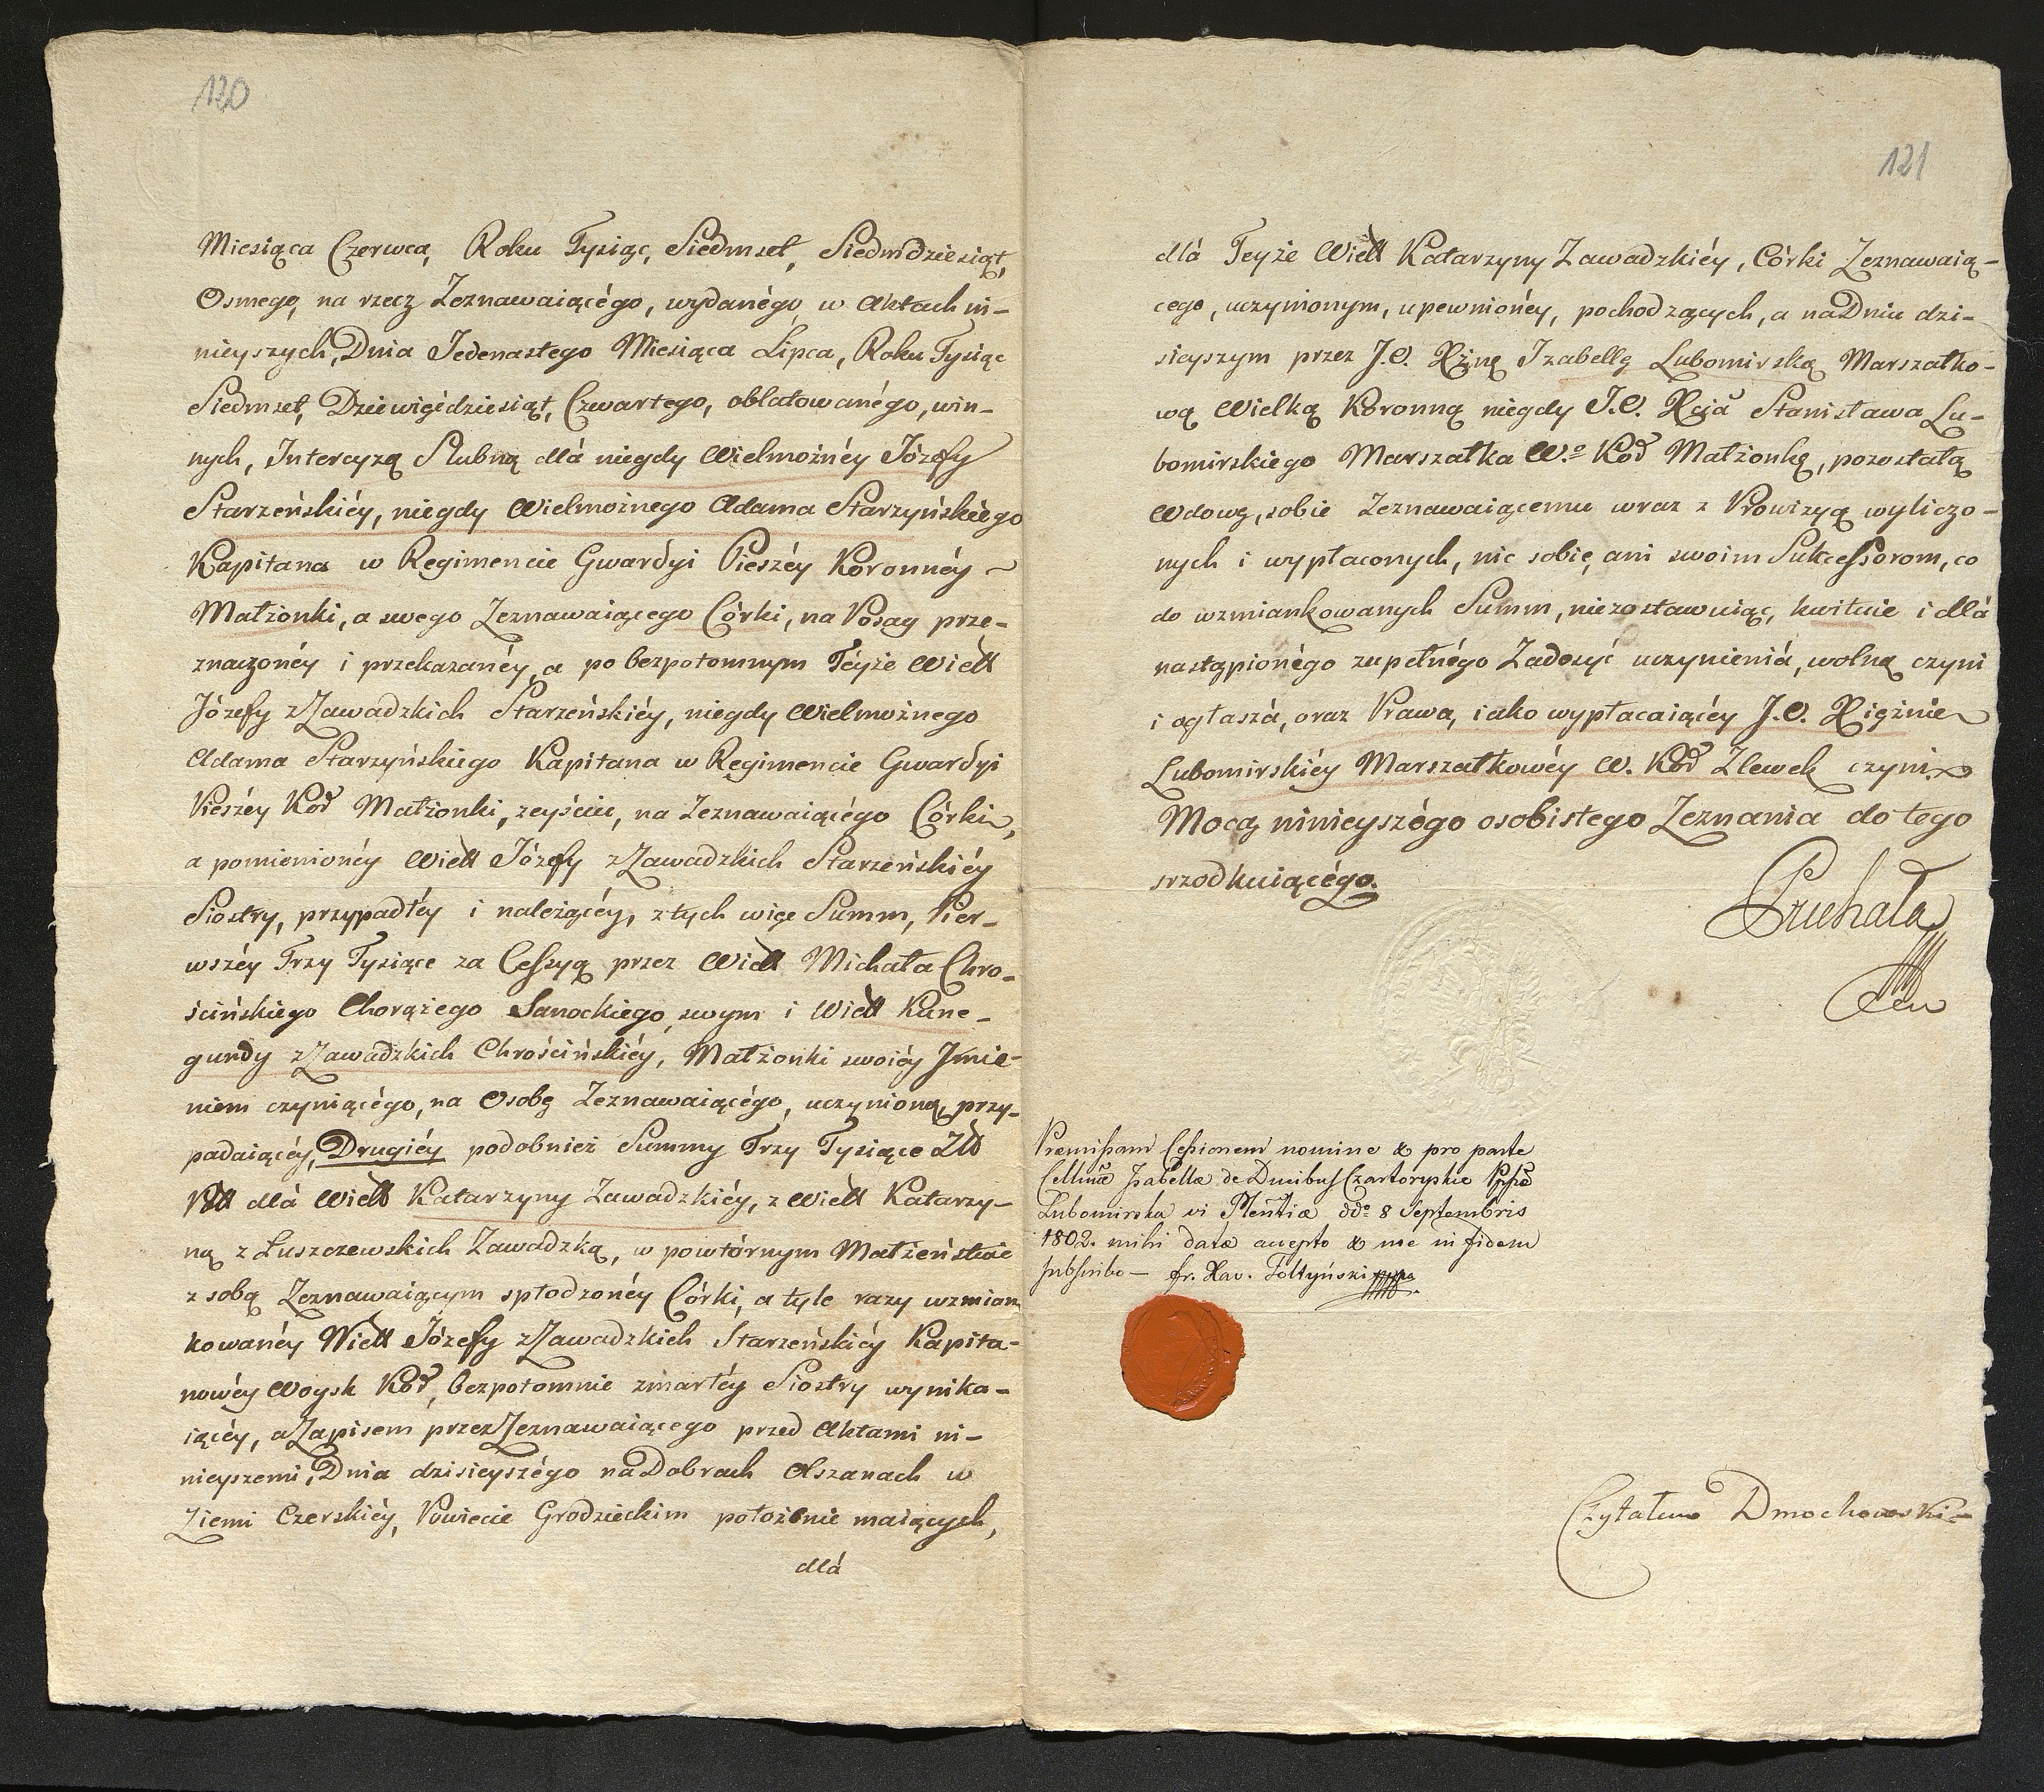 120
Miesiąca Czerwca, Roku Tysiąc, Siedmset, Siedmdziesiąt,
Osmego, na rzecz Zeznawaiącégo, wydanégo, w Aktach ni-
nieyszych, Dnia Jedenastego Miesiąca Lipca, Roku Tysiąc
Siedmset, Dziewięćdziesiąt, Czwartego, oblatowanégo, win-
nych, Intercyzą Slubną dlá niegdy Wielmożnéy Józefy
Starzeńskiéy, niegdy Wielmożnego Adama Starzyńskiégo
Kapitana w Regimencie Gwardyi Pieszéy Koronnéy
Małżonki, a swego Zeznawaiącego Córki, na Posag prze-
znaczonéy i przekazanéy, a po bezpotomnym Téyże Wiell
Józefy z Zawadzkich Starzeńskiéy, niegdy Wielmożnego
Adama Starzyńskiego Kapitana w Regimencie Gwardyi
Pieszéy Kor Małżonki, zeyściu, na Zeznawaiącégo Córki,
a pomienionéy Wiell Józefy z Zawadzkich Starzeńskiéy
Siostry, przypadłéy i należącéy, z tych więc Summ, Pier-
wszéy Trzy Tysiące za Cessyą przez Wiell Michała Chro-
ścińskiego Chorążego Sanockiego, swym i Wiell Kune-
gundy z Zawadzkich Chrościńskiéy, Małżonki swoiéy Jmie-
niem czyniącégo, na Osobę Zeznawaiącégo, uczynioną, przy-
padaiącéy, Drugiéy podobnież Summy Trzy Tysiące Zł
Pol dlá Wiell Katarzyny Zawadzkiéy, z Wiell Katarzy-
ną z Łuszczewskich Zawadzką, w powtórnym Małżeństwie
z sobą Zeznawaiącym spłodzonéy Córki, a tyle razy wzmian
kowanéy Wiell Józefy z Zawadzkich Starzeńskiéy Kapita-
nowéy Woysk Kor, bezpotomnie zmarłéy Siostry wynika-
iącéy, a Zapisem przez Zeznawaiącego przed Aktami ni-
nieyszemi, Dnia dzisieyszégo na Dobrach Olszanach w
Ziemi Czerskiéy, Powiecie Grodzieckim położenie maiących,
dlá
121
dlá Teyże Wiell Katarzyny Zawadzkiéy, Córki Zeznawaią-
cego, uczynionym, upewnionéy, pochodzących, a na Dniu dzi-
sieyszym przez J.O. Xżnę Izabellę Lubomirską Marszałko-
wą Wielką Koronną niegdy J.O. Xcia Stanisława Lu-
bomirskiego Marszałka W.o Kor Małżonkę, pozostałą
Wdowę, sobie Zeznawaiącemu wraz z Prowizyą wyliczo-
nych i wypłaconych, nic sobie, ani swoim Sukcessorom, co
do wzmiankowanych Summ, niezostawuiąc, kwituie i dlá
nastąpionégo zupełnégo Zadosyć uczynieniá, wolną czyni
i ogłaszá, oraz Prawa, iako wypłacaiącéy J.O. Xiężnie
Lubomirskiéy Marszałkowéy W. Kor Zlewek czyni.
Mocą ninieyszégo osobistego Zeznania do tego
srzodkuiącégo.
Premissam Cessionem nomine & pro parte
Cellmae Isabellae de Ducibus Czartoryskie Ppssae
Lubomirska vi Plentiae ddo 8 Septembris
1802. mihi datae accepto & me in fidem
subscribo — fr. Xav. Foltyński
Czytałem Dmochowski